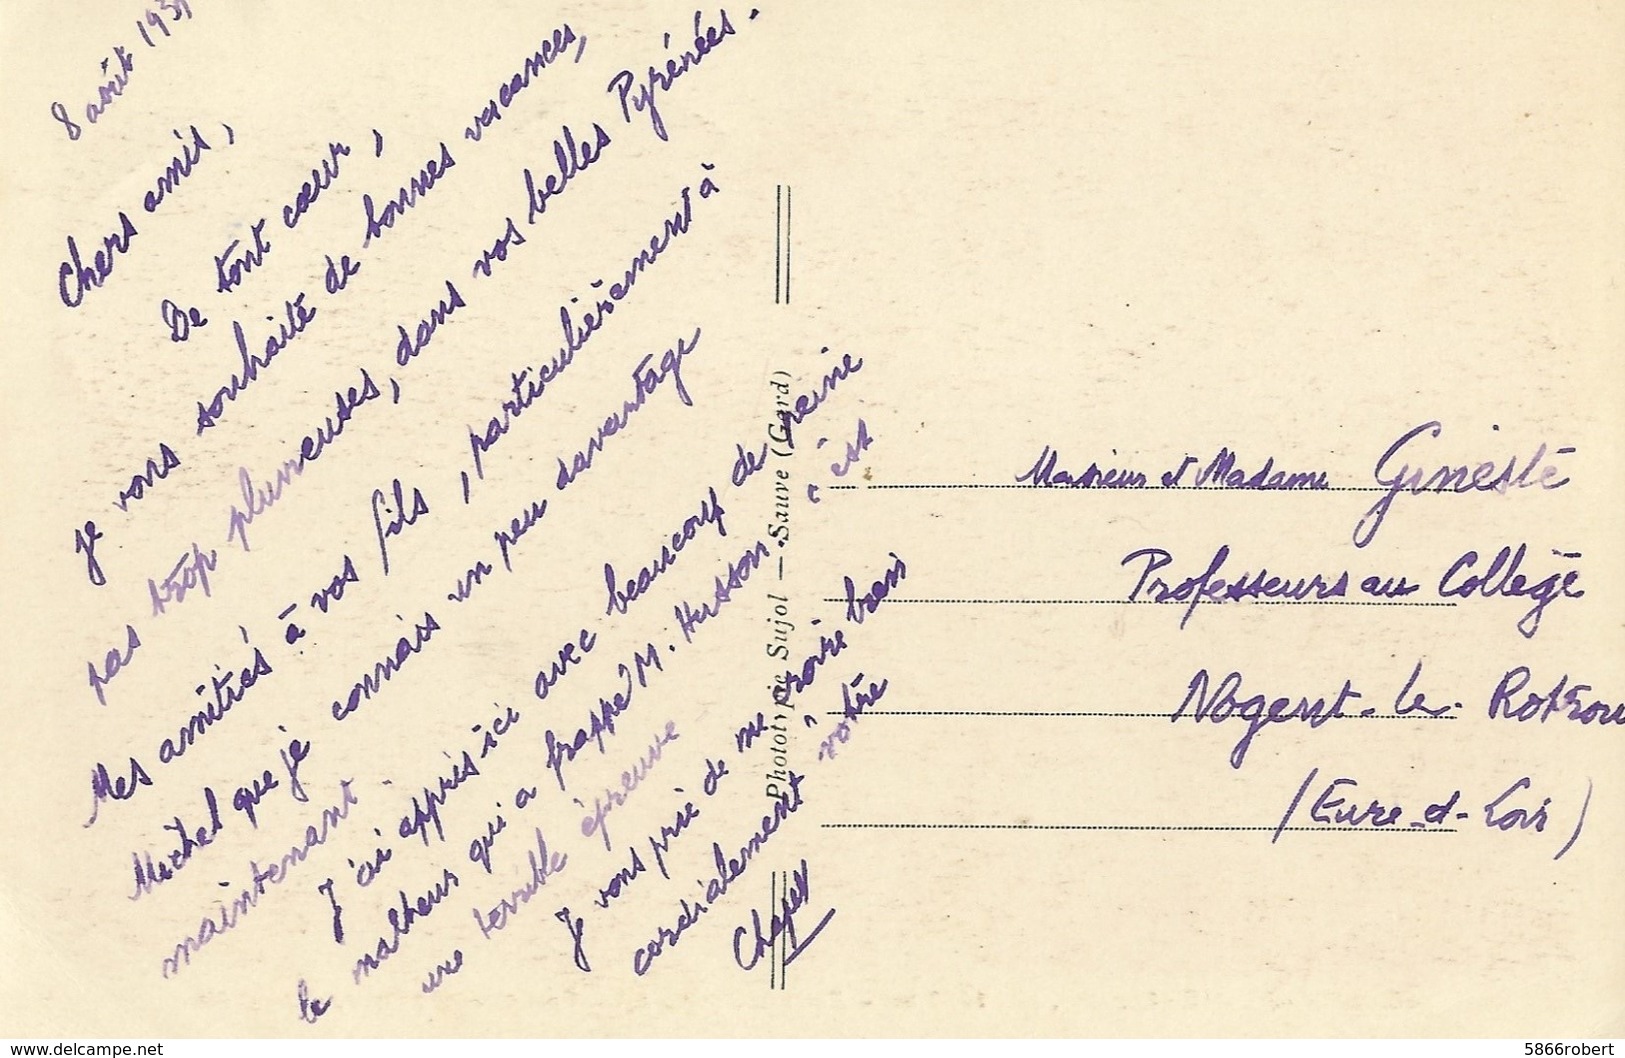 8 août 193
Chers amis,
De tout cœur,
je vous souhaite de bonnes vacances,
pas trop pluvieuses, dans vos belles Pyrénées.
Mes amitiés à vos fils, particulièrement à
Michel que je connais un peu davantage
maintenant.
J'ai appris ici avec beaucoup de peine
le malheur qui a frappé M. Husson. c'est
une terrible épreuve
Je vous prie de me croire bien
cordialement vôtre
Phototypie Sujol — Sauve (Gard)
Monsieur et Madame Gineste
Professeurs au Collège
Nogent-le-Rotrou
(Eure-et-Loir)
www.delcampe.net
5866robert